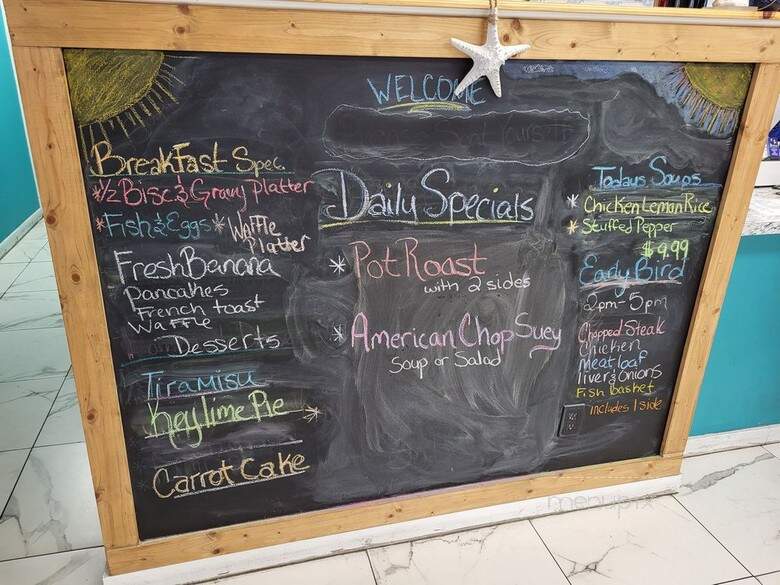 WELCOME
BreakFast Spec.
*1/2 Bisc & Gravy Platter
*Fish & Eggs * Waffle Platter
Fresh Banana
Pancakes
French toast
Waffle
Desserts
Tiramisu
Key lime Pie *
Carrot Cake
Daily Specials
* Pot Roast
with 2 sides
* American Chop Suey
Soup or Salad
Todays Soups
* Chicken Lemon Rice
* Stuffed Pepper
$9.99
Early Bird
2pm-5pm
Chopped Steak
Chicken
meatloaf
liver & onions
Fish basket
includes 1 side
menupix